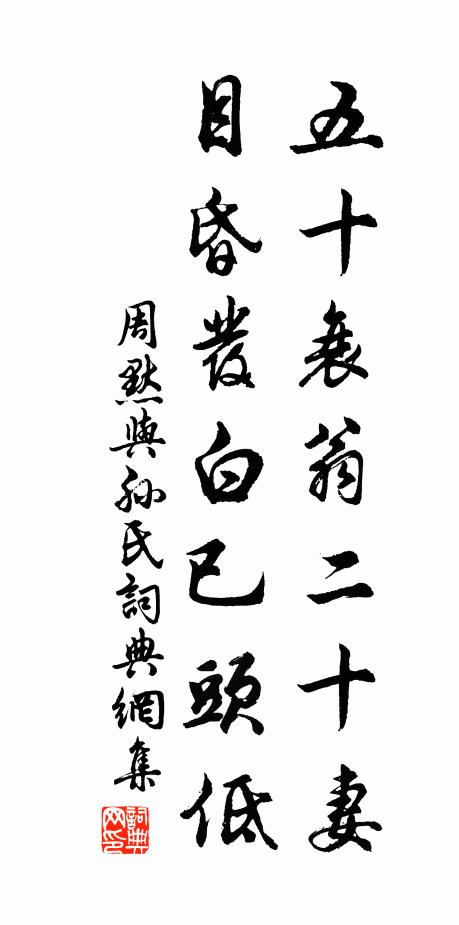 五十衰翁二十妻
目昏發白已頭低
周默與孫氏詞典網集
詞典網印